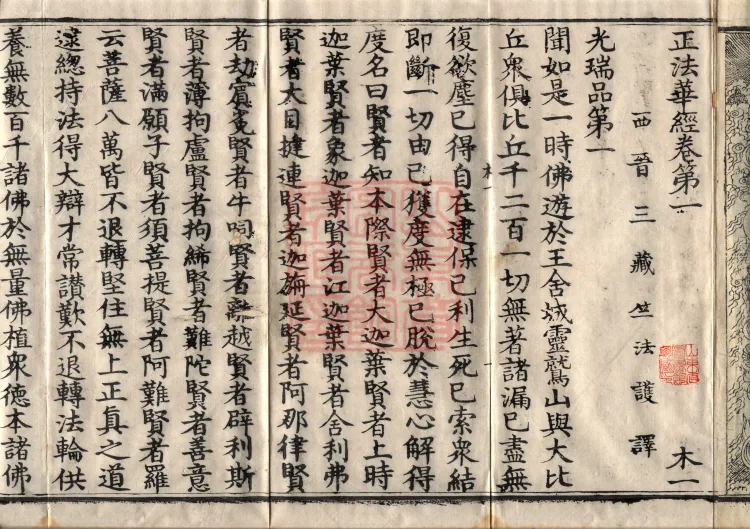 正法華經卷第一 木一
西晉三藏竺法護譯
光瑞品第一
聞如是一時佛遊於王舍城靈鷲山與大比
丘衆俱比丘千二百一切無著諸漏已盡無
復欲塵已得自在逮保己利生死已索衆結
即斷一切由已獲度無極已脫於慧心解得
度名曰賢者知本際賢者大迦葉賢者上時
迦葉賢者象迦葉賢者江迦葉賢者舍利弗
賢者大目揵連賢者迦旃延賢者阿那律賢
者劫賔㝹賢者牛呞賢者離越賢者辟利斯
賢者薄拘盧賢者拘絺賢者難陀賢者善意
賢者滿願子賢者須菩提賢者阿難賢者羅
云菩薩八萬皆不退轉堅住無上正真之道
逮總持法得大辯才常讃歎不退轉法輪供
養無數百千諸佛於無量佛植衆德本諸佛